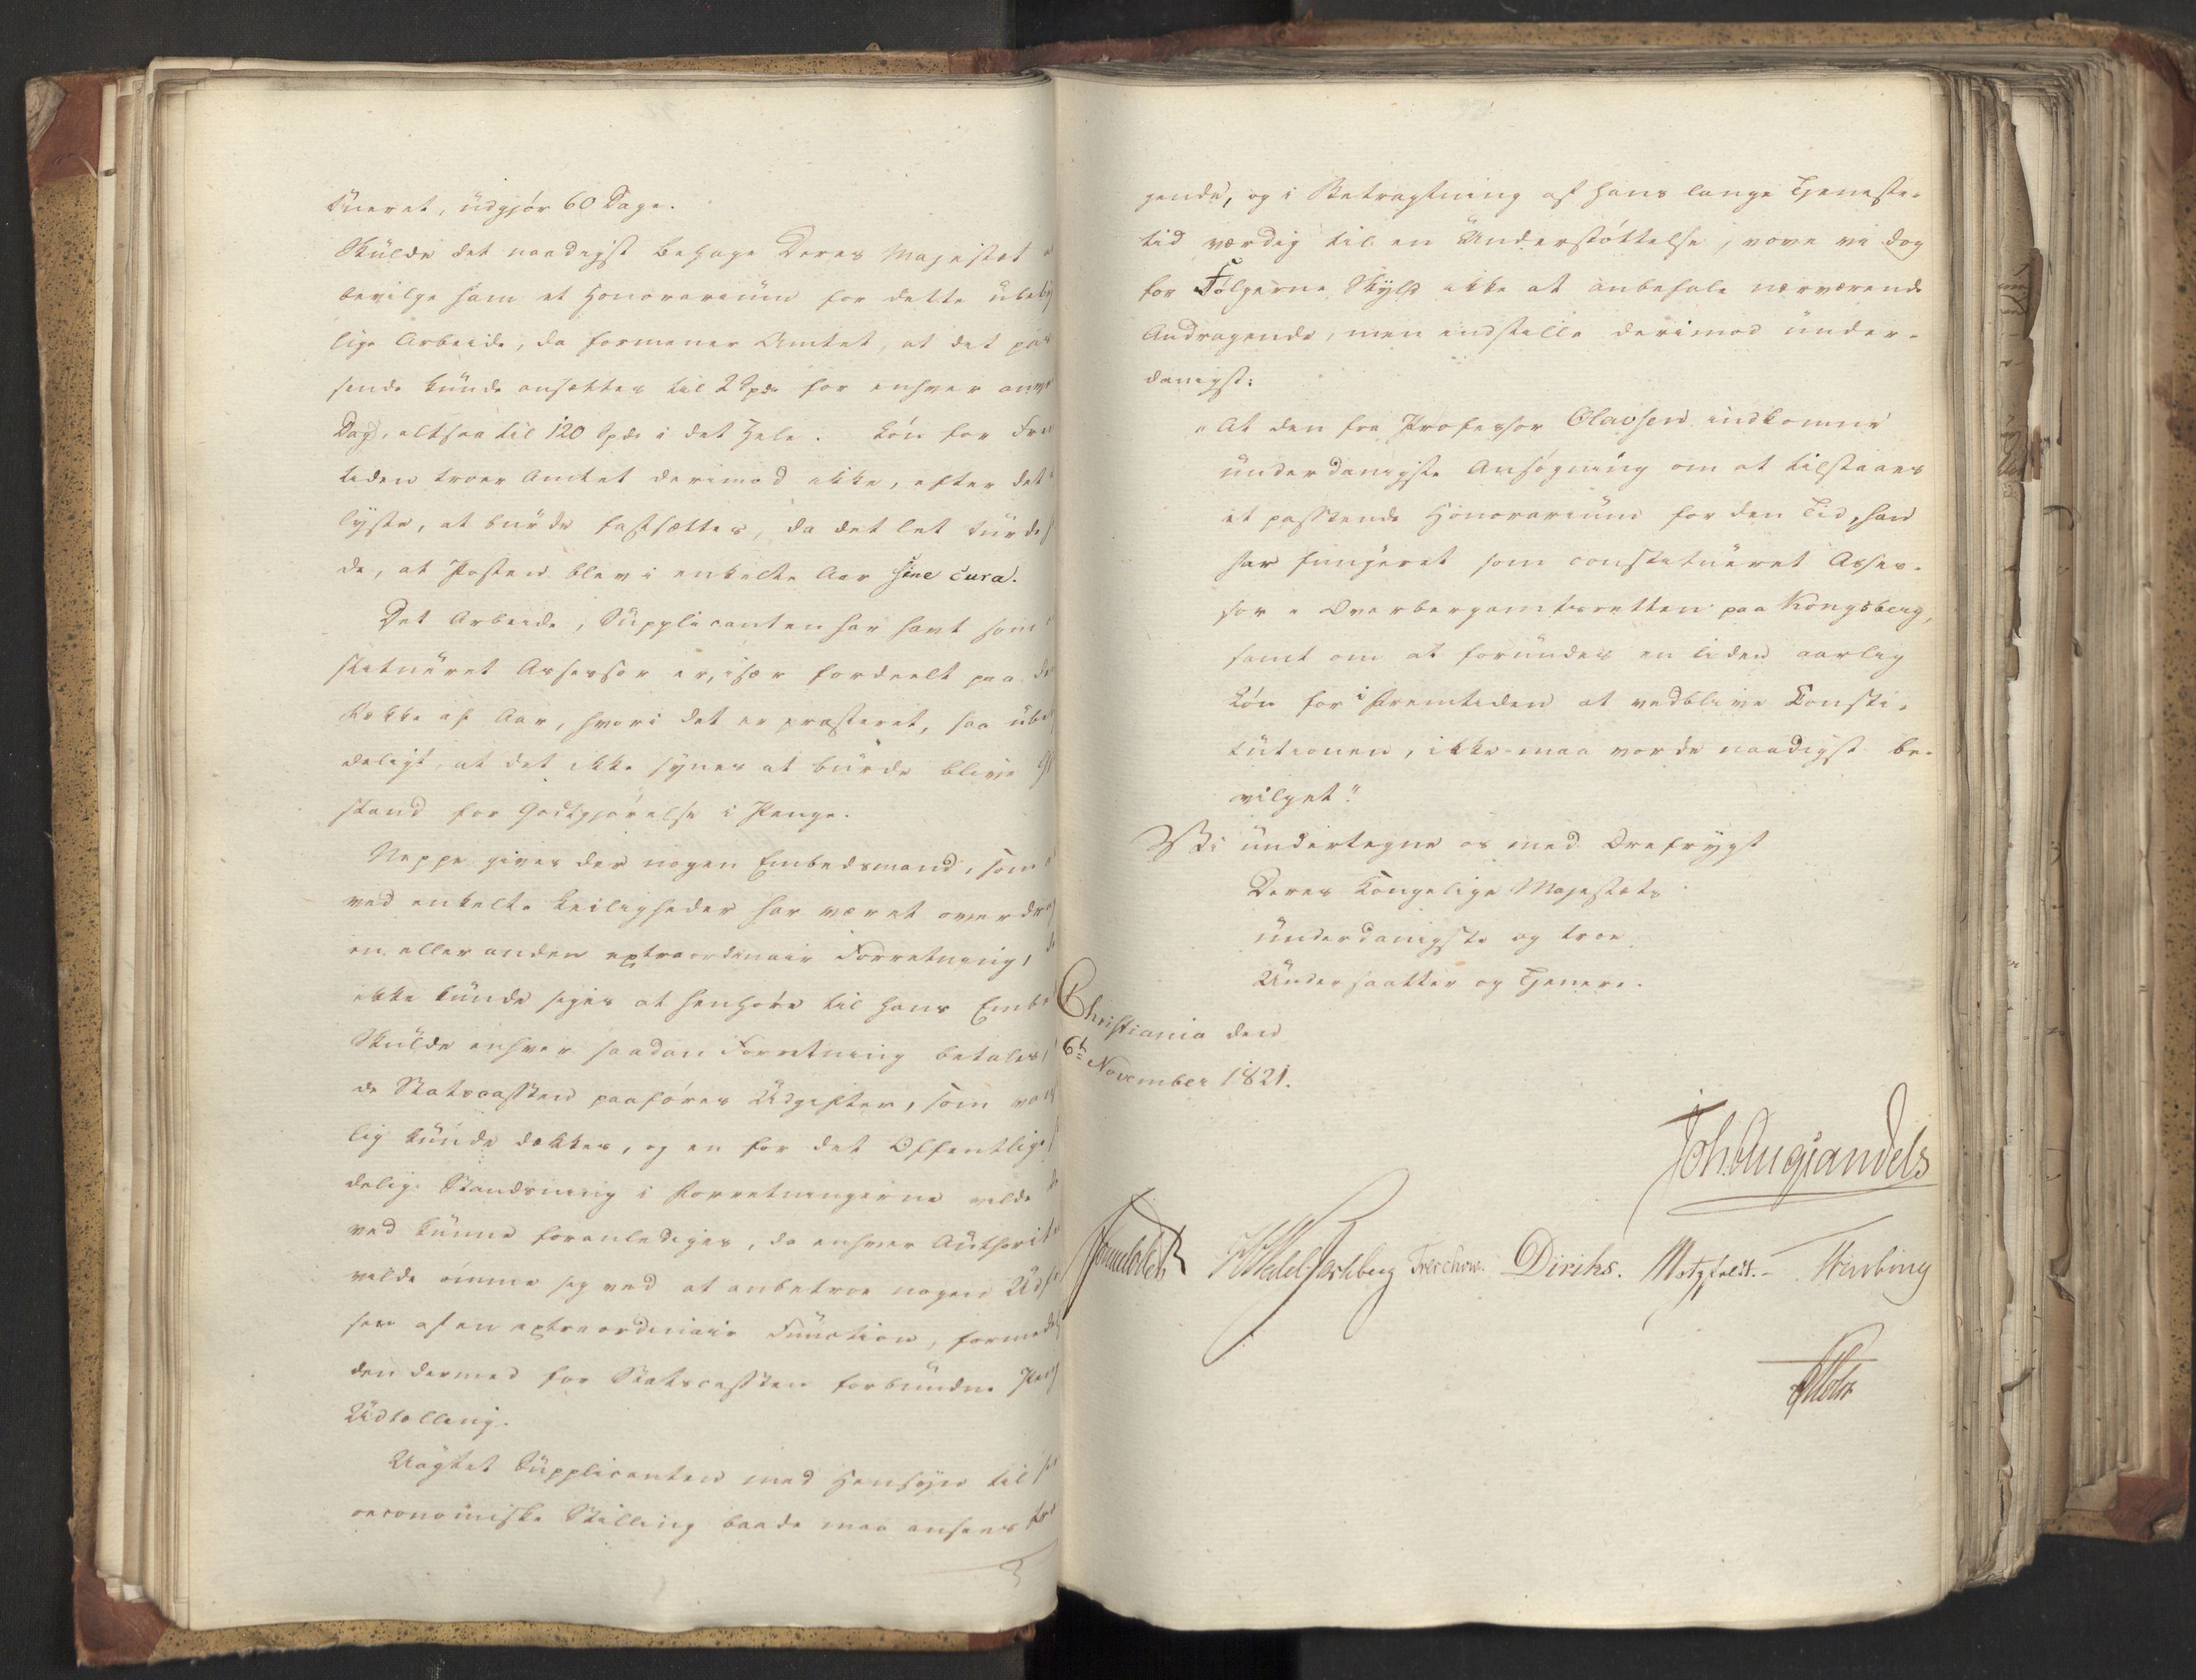 tueret, udgjør 60 Dage.
Skulde det naadigst behage Deres Majestæt
bevilge ham et Honorarium for dette ubety
lige Arbeide, da formener Amtet, at det pas
sende kunde ansættes til 2 Spd. for enhver anv
Dag, altsaa til 120 Spd. i det Hele. Løn for Frem
tiden troer Amtet derimod ikke, efter det
lyste, at burde fastsættes, da det let turde
de, at Posten blev i enkelte Aar sine cura.
Det Arbeide, Supplicanten har havt som
stitueret Assessor er, især fordeelt paa de
Række af Aar, hvori det er præsteret, saa ube
deligt, at det ikke synes at burde blive Gj
stand for Godtgjørelse i Penge.
Neppe gives der nogen Embedsmand, som
ved enkelte Leiligheder har været overdra
en eller anden extraordinair Forretning,
ikke kunde siges at henhøre til hans Embe
Skulde enhver saadan Forretning betales,
de Statscassen paaføres Udgifter, som va
lig kunde dækkes, og en for det Offentlige
delig Standsning i Forretningerne vilde
ved kunne foranlediges, da enhver Authorite
vilde ømme sig ved at anbetroe nogen Udf
sen af en extraordinair Function, formed
den dermed for Statscassen forbundne Peng
Udtælling.
Uagtet Supplicanten med Hensyn til
oeconomiske Stilling baade maa ansees tr
gende, og i Betragtning af hans lange Tjeneste-
tid værdig til en Understøttelse, vove vi dog
for Følgerne Skyld ikke at anbefale nærværende
Andragende, men indstille derimod under-
danigst:
"At den fra Professor Olavsen indkomne
underdanigste Ansøgning om at tilstaaes
et passende Honorarium for den Tid, han
har fungeret som constitueret Asses-
sor i Overbergamtsretten paa Kongsberg,
samt om at forundes en liden aarlig
Løn for i Fremtiden at vedblive Consti-
tutionen, ikke maa vorde naadigst be-
vilget."
Vi undertegne os med Ærefrygt
Deres Kongelige Majestæts
underdanigste og troe
Undersaatter og Tjenere.
Christiania den
6te November 1821.
Joh. Aug Sandels
Sommerhielm H Wedel Jarlsberg Treschow. Diriks. Motzfeldt. Fasting